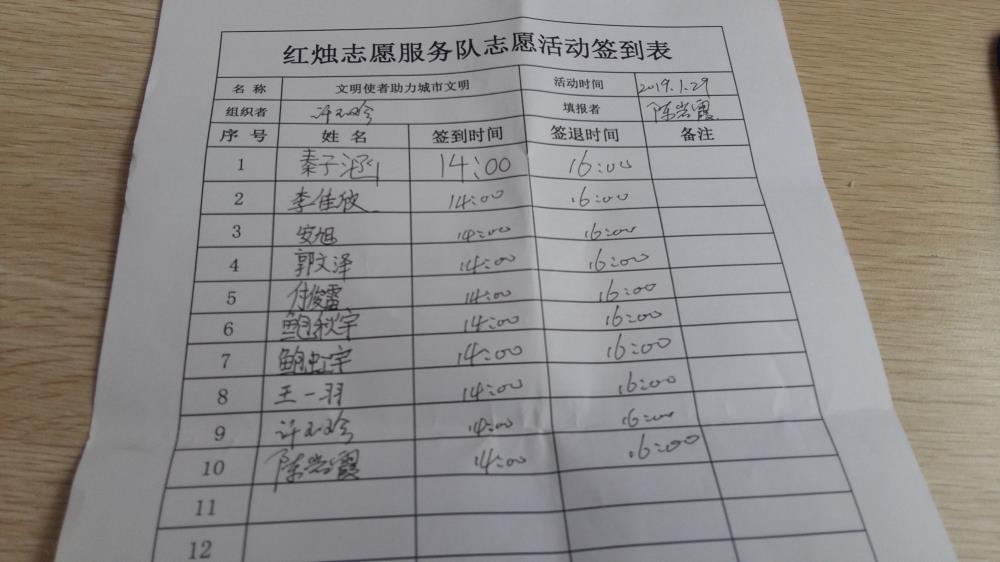 红烛志愿服务队志愿活动签到表
名 称 文明使者助力城市文明 活动时间 2019.1.29
组织者 许玉珍 填报者 陈岩霞
序 号 姓 名 签到时间 签退时间 备注
1 秦子涵 14:00 16:00
2 李佳欣 14:00 16:00
3 安旭 14:00 16:00
4 郭文泽 14:00 16:00
5 付俊雷 14:00 16:00
6 鲍秋宇 14:00 16:00
7 鲍虹宇 14:00 16:00
8 王一羽 14:00 16:00
9 许玉珍 14:00 16:00
10 陈岩霞 14:00 16:00
11
12